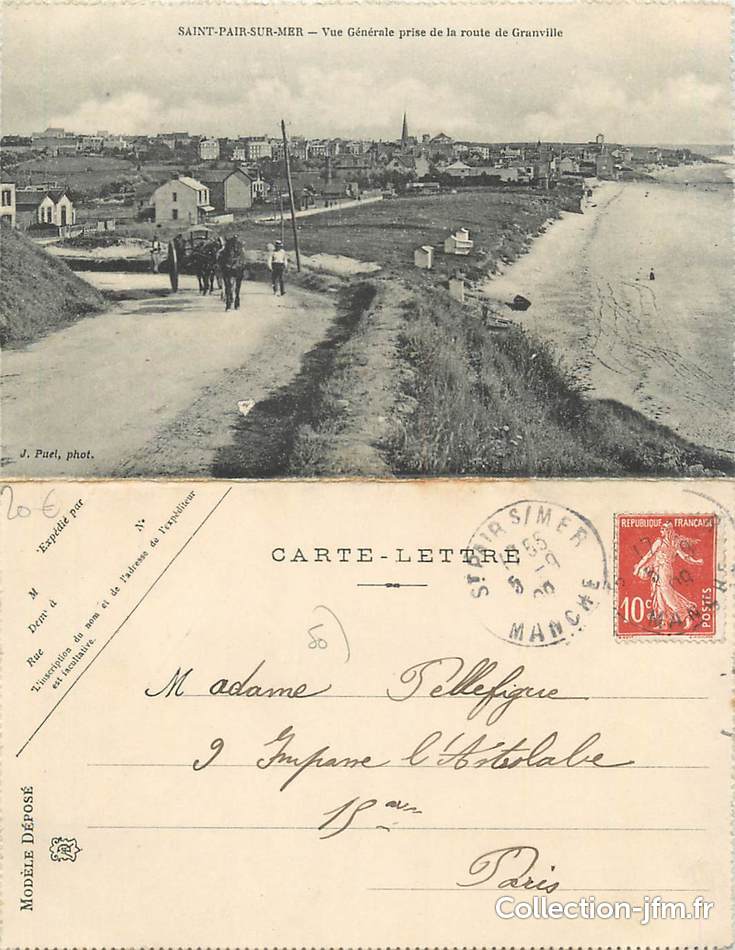 SAINT-PAIR-SUR-MER — Vue Générale prise de la route de Granville
J. Puel, phot.
20€
Expédié par
M
N°
Demt à
Rue
L'inscription du nom et de l'adresse de l'expéditeur
est facultative.
CARTE-LETTRE
ST PAIR S/MER
MANCHE
REPUBLIQUE FRANÇAISE
10c
POSTES
Madame Pellefigue
9 Impasse l'Astrolabe
15
Paris
MODÈLE DÉPOSÉ
Collection-jfm.fr